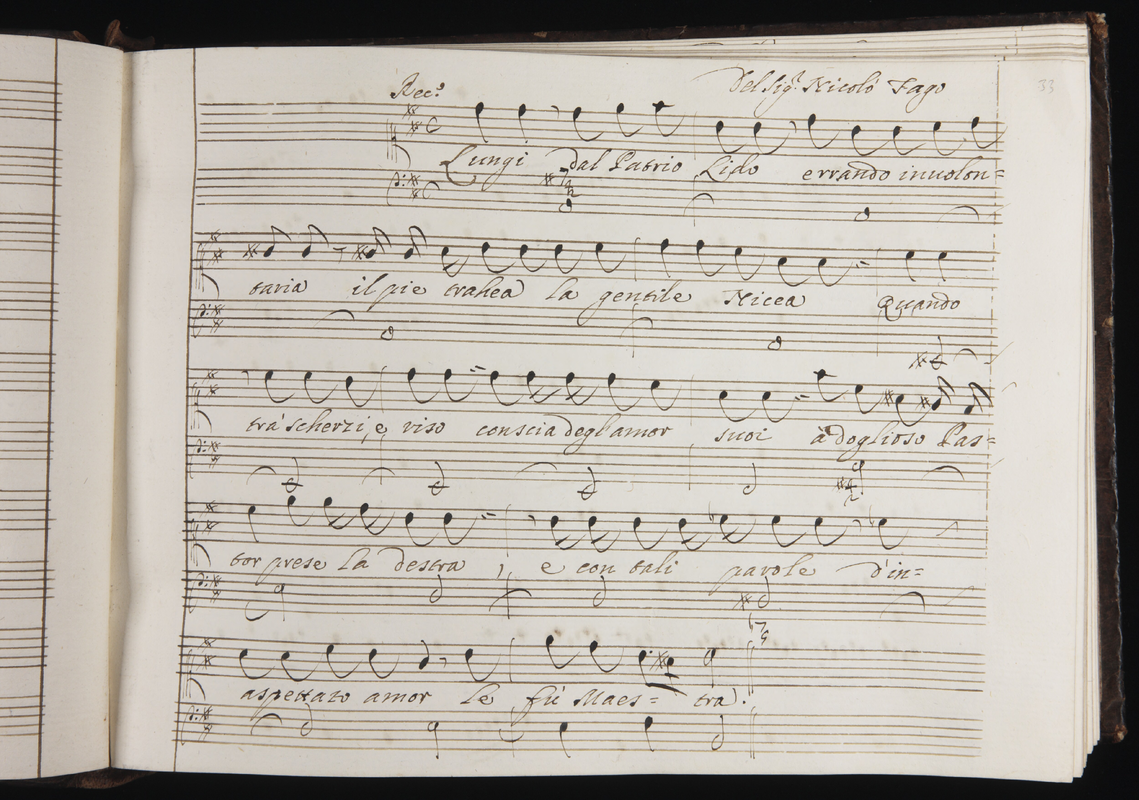 Rec.º Del Sig.r Nicolò Fago
33
Lungi dal Patrio Lido errando inuolon=
taria il pie trahea la gentile Nicea Quando
trà scherzi, e viso conscia degl'amor suoi à doglioso Pas=
tor prese la destra, e con tali parole d'in=
aspettato amor le fù Maes= tra.